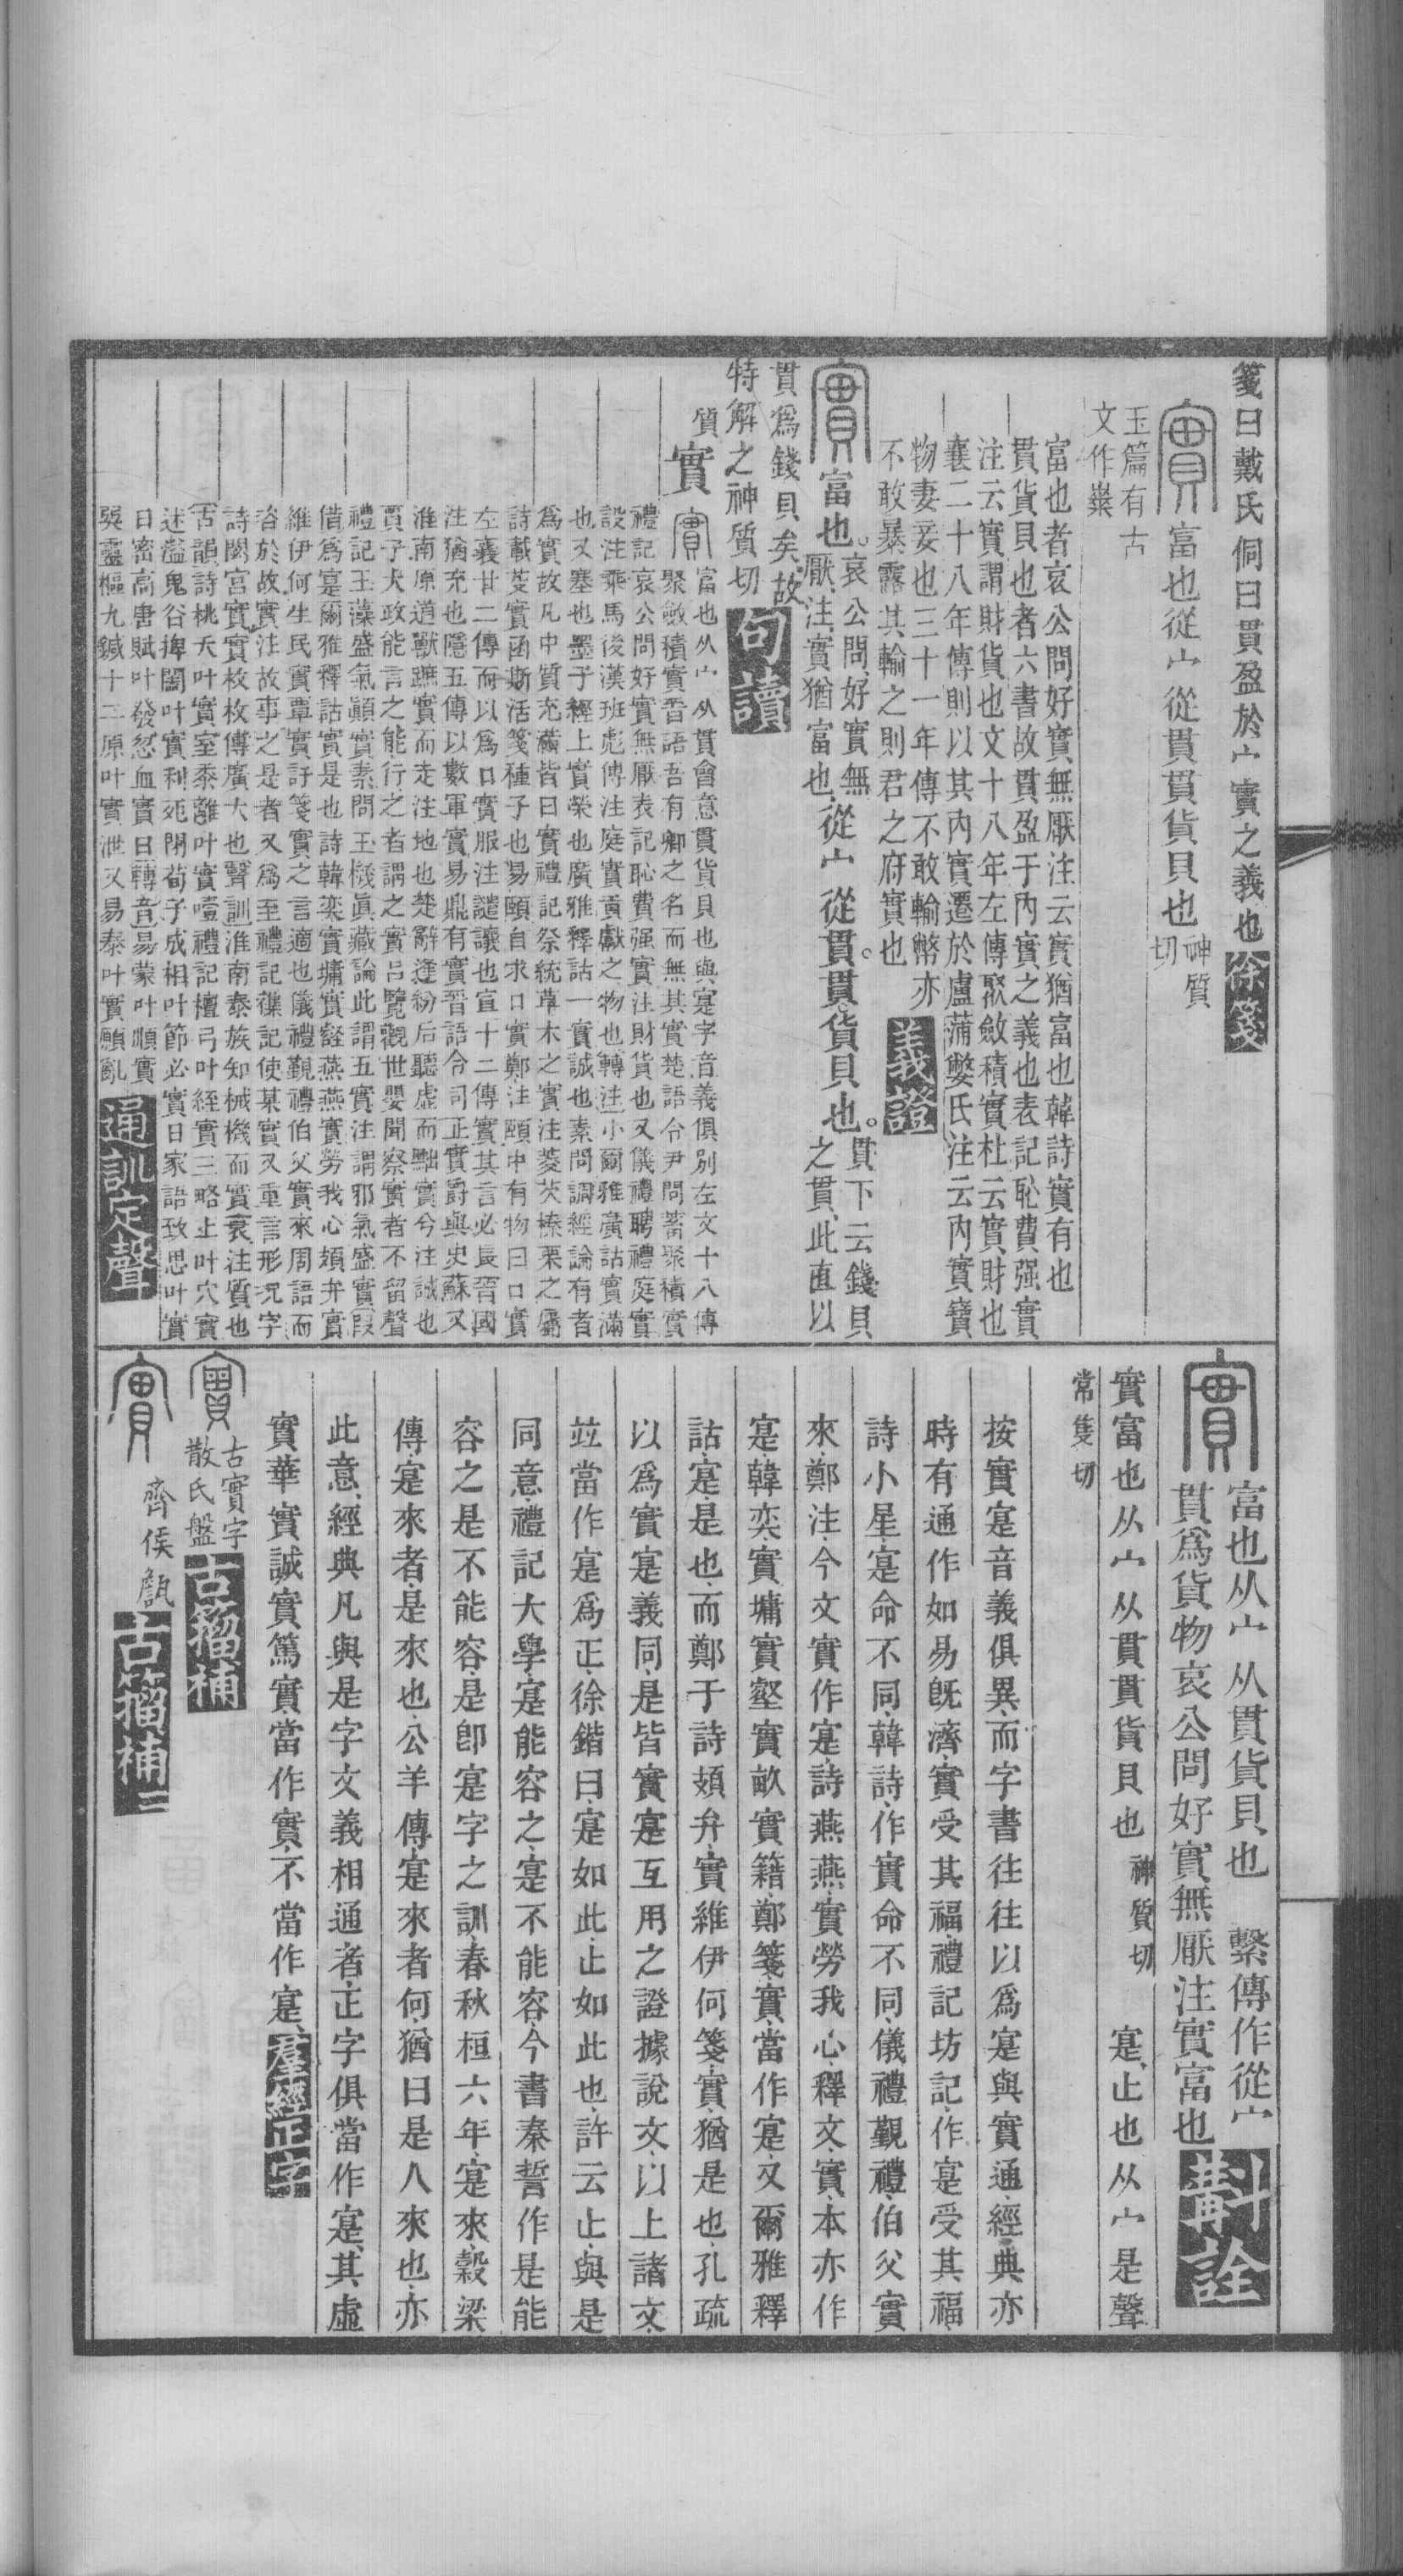 箋曰戴氏侗曰貫盈於宀實之義也 徐箋
實 富也從宀從貫貫貨貝也 神質切
玉篇有古
文作
富也者哀公問好實無厭注云實猶富也韓詩實有也
貫貨貝也者六書故貫盈于內實之義也表記恥費强實
注云實謂財貨也文十八年左傳聚斂積實杜云實財也
襄二十八年傳則以其內實遷於盧蒲嫳氏注云內實寶
物妻妾也三十一年傳不敢輸幣亦
不敢暴露其輸之則君之府實也 義證
實 富也。哀公問、好實無厭、注、實猶富也、從宀從貫。貫貨貝也。貫下云、錢貝之貫、此直以
貫爲錢貝矣、故
特解之神質切 句讀
質
實 實 富也从宀从貫會意貫貨貝也與寔字音義俱別左文十八傳
聚斂積實晉語吾有卿之名而無其實楚語令尹問蓄聚積實
禮記哀公問好實無厭表記恥費强實注財貨也又儀禮聘禮庭實
設注乘馬後漢班彪傳注庭實貢獻之物也轉注小爾雅廣詁實滿
也又塞也墨子經上實榮也廣雅釋詁一實誠也素問調經論有者
爲實故凡中質充滿皆曰實禮記祭統草木之實注菱芡榛栗之屬
詩載芟實函斯活箋種子也易頤自求口實鄭注頤中有物曰口實
左襄廿二傳而以爲口實服注譴讓也宣十二傳實其言必長晉國
注猶充也隱五傳以數軍實易鼎有實晉語令司正實爵與史蘇又
淮南原道獸蹠實而走注地也楚辭逢紛后聽虛而黜實兮注誠也
賈子大政能言之能行之者謂之實呂覽觀世嬰聞察實者不留聲
禮記玉藻盛氣顚實素問玉機眞藏論此謂五實注謂邪氣盛實叚
借爲寔爾雅釋詁實是也詩韓奕實墉實壑燕燕實勞我心頍弁實
維伊何生民實覃實訏箋實之言適也儀禮覲禮伯父實來周語而
咨於故實注故事之是者又爲至禮記雜記使某實又重言形況字
詩閟宮實實枚枚傳廣大也聲訓淮南泰族知械機而實衰注質也
古韻詩桃夭叶實室黍離叶實噎禮記檀弓叶絰實三略上叶穴實
述溢鬼谷捭闔叶實利死閉荀子成相叶節必實日家語致思叶實
日密高唐賦叶發忽血實日轉音易蒙叶順實
吳靈樞九鍼十二原叶實泄又易泰叶實願亂 通訓定聲
實 富也从宀从貫貨貝也 繫傳作從宀
貫爲貨物哀公問好實無厭注實富也 斠詮
實富也从宀从貫貫貨貝也 神質切 寔、止也从宀是聲
常隻切
按實寔音義俱異、而字書往往以爲寔與實通、經典亦
時有通作、如易旣濟、實受其福、禮記坊記、作寔受其福、
詩小星、寔命不同、韓詩、作實命不同、儀禮覲禮、伯父實
來、鄭注、今文實作寔、詩燕燕、實勞我心、釋文、實、本亦作
寔、韓奕、實墉實壑實畝實籍、鄭箋、實、當作寔、又爾雅釋
詁、寔、是也、而鄭于詩頍弁、實維伊何箋、實、猶是也、孔疏
以爲實寔義同、是皆實寔互用之證、據說文、以上諸文、
竝當作寔爲正、徐鍇曰、寔如此、止如此也、許云止、與是
同意、禮記大學、寔能容之、寔不能容、今書秦誓作是能
容之是不能容、是卽寔字之訓、春秋桓六年、寔來、穀梁
傳、寔來者、是來也、公羊傳、寔來者何、猶曰是人來也、亦
此意、經典凡與是字文義相通者、正字俱當作寔、其虛
實華實誠實篤實、當作實、不當作寔、 羣經正字
實 古實字
散氏盤 古籀補
實 齊侯甗 古籀補二